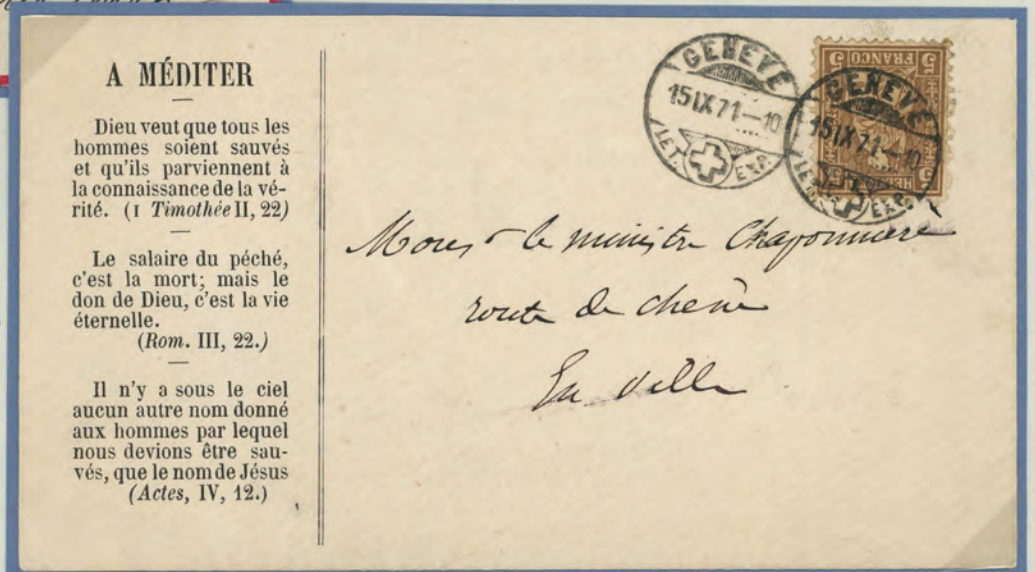 A MÉDITER
Dieu veut que tous les
hommes soient sauvés
et qu'ils parviennent à
la connaissance de la vé-
rité. (I Timothée II, 22)
Le salaire du péché,
c'est la mort; mais le
don de Dieu, c'est la vie
éternelle.
(Rom. III, 22.)
Il n'y a sous le ciel
aucun autre nom donné
aux hommes par lequel
nous devions être sau-
vés, que le nom de Jésus
(Actes, IV, 12.)
GENEVE
15 IX 71—10
LET. EXP.
GENEVE
15 IX 71—10
EXP.
5 FRANCO 5
le ministre Chaponnière
route de chêne
En ville